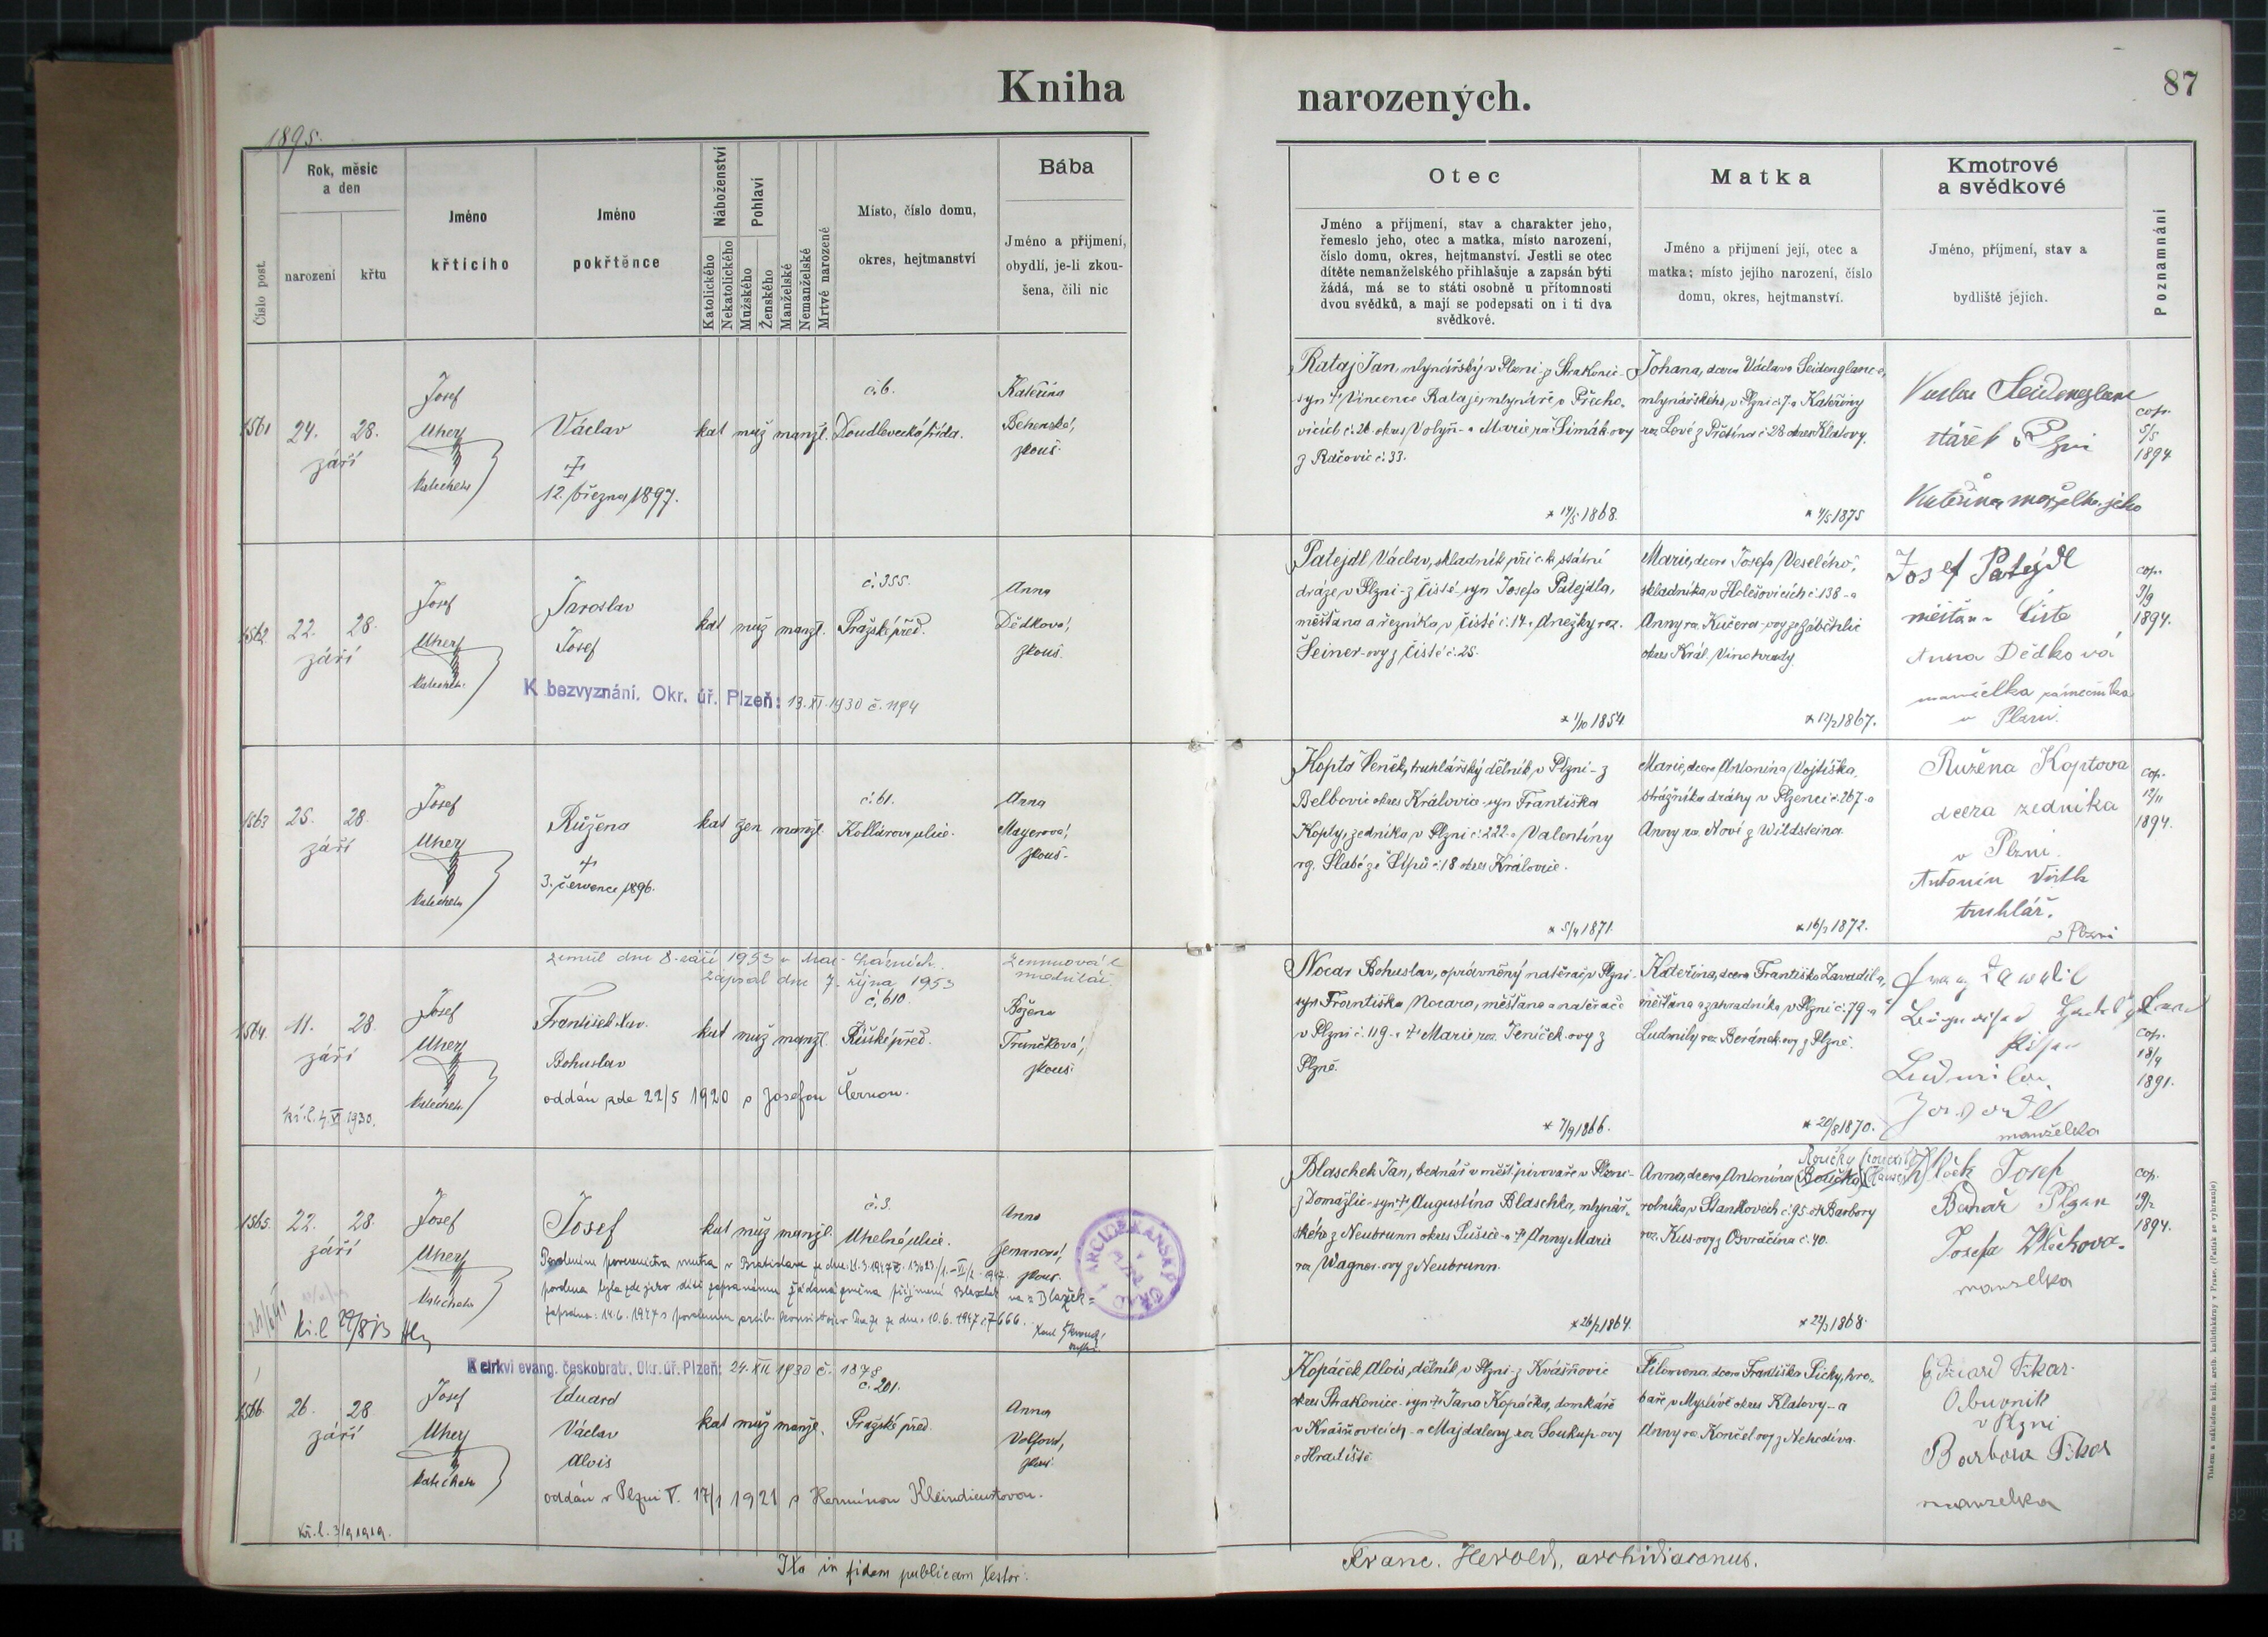 Kniha
narozených.
87
1895.
Číslo post.
Rok, měsíc
a den
narození
křtu
Jméno
křtícího
Jméno
pokřtěnce
Náboženství
Katolického
Nekatolického
Pohlaví
Mužského
Ženského
Manželské
Nemanželské
Mrtvé narozené
Místo, číslo domu,
okres, hejtmanství
Bába
Jméno a přijmení,
obydlí, je-li zkou-
šena, čili nic
Otec
Jméno a příjmení, stav a charakter jeho,
řemeslo jeho, otec a matka, místo narození,
číslo domu, okres, hejtmanství. Jestli se otec
dítěte nemanželského přihlašuje a zapsán býti
žádá, má se to státi osobně u přítomnosti
dvou svědků, a mají se podepsati on i ti dva
svědkové.
Matka
Jméno a přijmení její, otec a
matka; místo jejího narození, číslo
domu, okres, hejtmanství.
Kmotrové
a svědkové
Jméno, příjmení, stav a
bydliště jejich.
Poznamnání
1561
24. 28.
září
Josef
Uherz
katecheta
Václav
12. března 1897.
kat muž manžl.
č. 6.
Doudlevecká třída.
Kateřina
Behenská,
zkouš.
Rataj Jan, mlynářský v Plzni - z Strakonic -
syn † Vincence Rataje, mlynáře v Přecho-
vicích č. 26. okres Volyň - a Marie roz. Šimák-ovy
z Račovic č. 33.
* 17/5 1868.
Johana, dcera Václava Seidenglanc-a,
mlynářského v Plzni č. 7 - a Kateřiny
roz. Levé z Přetína č. 28 okres Klatovy.
* 4/5 1875
Vaclav Seidenglanc
stárek v Plzni
Kateřina, manželka jeho
cop.
5/5
1894
1562
22. 28.
září
Josef
Uherz
katecheta
Jaroslav
Josef
kat muž manžl.
č. 355.
Pražské před.
Anna
Dědková,
zkouš.
K bezvyznání. Okr. úř. Plzeň: 13. XI. 1930 č. 1194
Patejdl Václav, skladník při c. k. státní
dráze v Plzni - z Čisté - syn Josefa Patejdla,
měšťana a řezníka v Čisté č. 14 - a Anežky roz.
Šeiner-ovy z Čisté č. 25.
* 1/10 1854
Marie, dcera Josefa Veselého,
skladníka v Holešovicích č. 138 - a
Anny roz. Kučera-ovy ze Záběhlic
okres Král. Vinohrady.
* 12/2 1867.
Josef Patejdl
měšťan v Čisté
Anna Dědková
manželka zámečníka
v Plzni.
cop.
9/9
1894.
1563
25. 28.
září
Josef
Uherz
katecheta
Růžena
3. července 1896.
kat žen manžl.
č. 61.
Kollárova ulice.
Anna
Mayerová,
zkouš.
Kopta Čeněk, truhlářský dělník v Plzni - z
Belbovic okres Královice - syn Františka
Kopty, zedníka v Plzni č. 222 - a Valentiny
roz. Slabé ze Slpů č. 18 okres Královice.
* 5/4 1871.
Marie, dcera Antonína Vojtíška,
strážníka dráhy v Plzenci č. 267 - a
Anny roz. Noví z Wildsteina.
* 16/7 1872.
Ružena Koptova
dcera zedníka
v Plzni.
Antonín
truhlář.
v Plzni
cop.
12/11
1894.
zemřel dne 8. září 1953 v Mar. Lázních.
zapsal dne 7. října 1953
1564.
11. 28.
září
kř. l. 4. VI 1930.
Josef
Uherz
katecheta
František Xav.
Bohuslav
kat muž manžl.
č. 610.
Říšské před.
Božena
Trunčková,
zkouš.
oddán zde 22/5 1920 s Josefou Černou.
Nocar Bohuslav, oprávněný natěrač v Plzni -
syn Františka Nocara, měšťana a natěrače
v Plzni č. 119 - a † Marie roz. Jeníček-ovy z
Plzně.
* 7/9 1866.
Kateřina, dcera Františka Zavadila,
měšťana a zahradníka v Plzni č. 79 - a
Ludmily roz. Beránek-ovy z Plzně.
* 20/8 1870.
Ludmila
manželka
cop.
18/4
1891.
1565.
22. 28.
září
Josef
Uherz
katecheta
Josef
kat muž manžl.
č. 3.
Uhelná ulice.
Anna
Zemanová,
zkouš.
ARCIDĚKANSKÝ ÚŘAD
Blaschek Jan, bednář v měšť. pivovaře v Plzni -
z Domažlic - syn † Augustina Blaschka, mlynář-
ského z Neubrunn okres Sušice - a † Anny Marie
roz. Wagner-ovy z Neubrunn.
* 26/2 1864.
Anna, dcera Antonína
rolníka v Stankovech č. 95 - a † Barbory
roz. Kus-ovy z Osvračína č. 40.
* 22/3 1868.
Josef
Bednář Plzen
Josefa Vlčkova.
manzelka
cop.
19/2
1894.
K církvi evang. českobratr. Okr. úř. Plzeň: 24. XII 1930 č. 1878
1566
26. 28
září
kř. l. 3/9 1919.
Josef
Uherz
katecheta
Eduard
Václav
Alois
kat muž manžl.
č. 201.
Pražské před.
Anna
Volfová,
zkouš.
oddán v Plzni V. 17/1 1921 s Hermínou Kleindienstovou.
Kopáček Alois, dělník v Plzni - z Kvášňovic
okres Strakonice - syn † Jana Kopáčka, domkáře
v Kvášňovicích - a Majdaleny roz. Soukup-ovy
z Hradiště.
Filomena, dcera Františka Picky, hro-
baře v Myslívě okres Klatovy - a
Anny roz. Končel-ovy z Nehodíva.
Eduard Fikar
Obuvnik
v Plzni
Barbora Fikar
manzelka
Ita in fidem publicam testor:
Franc. Herold, archidiaconus.